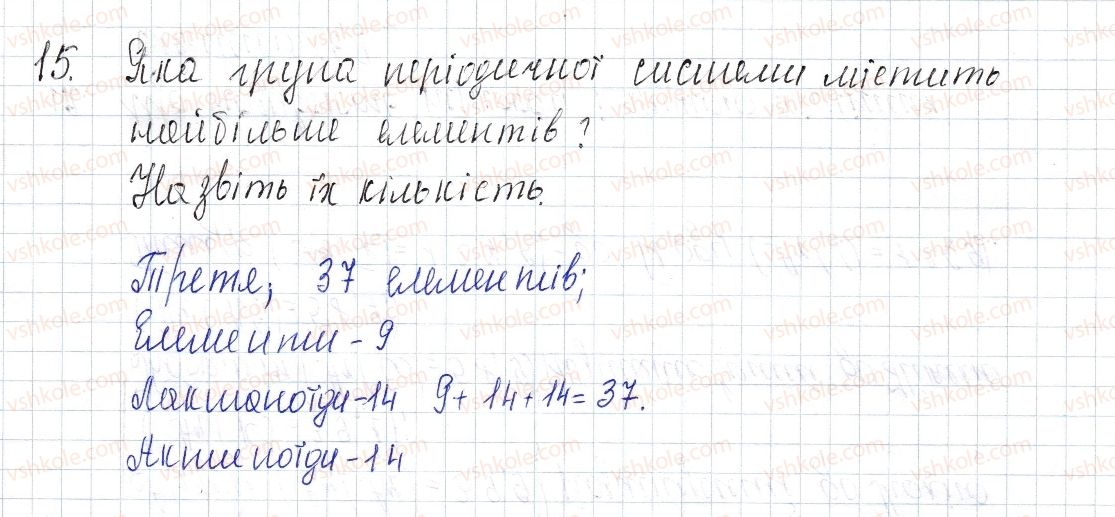 15. Яка група періодичної системи містить
найбільше елементів?
Назвіть їх кількість.
Третя; 37 елементів;
Елементи - 9
Лактаноїди-14 9+ 14+14= 37.
Актиноїди-14